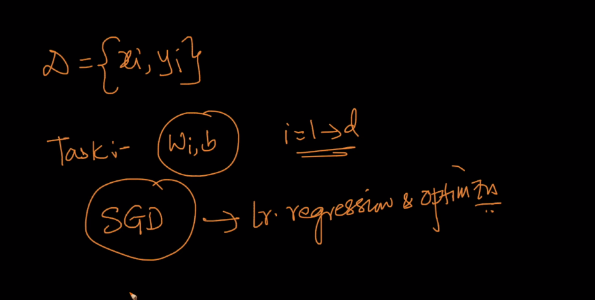 D = {xi, yi}
Task:- Wi, b i=1→d
SGD → Lr. regression & optim